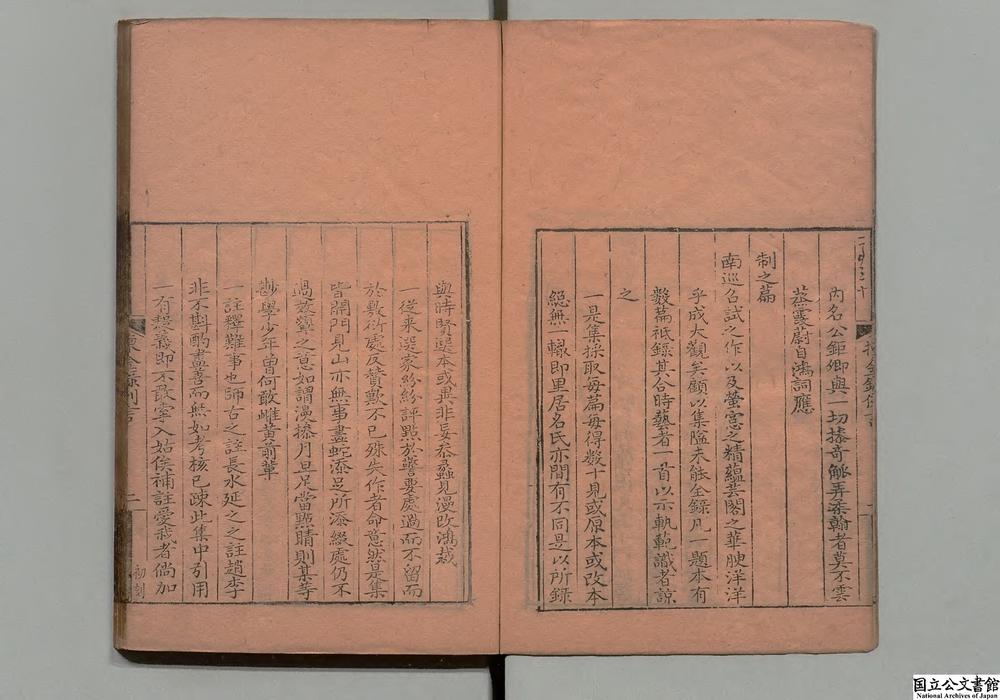 內名公鉅卿與一切搽奇觚弄柔翰者莫不雲
蒸霞蔚自鴻詞應
制之篇
南巡召試之作以及螢窻之精蘊芸閣之華腴洋洋
乎成大觀矣顧以集隘未能全錄凡一題本有
數篇祗錄其合時藝者一首以示軌軏識者諒
之
一是集採取每篇每得數十見或原本或改本
總無一轍即里居名氏亦間有不同是以所錄
與時賢選本或異非妄叅蠡見漫改鴻裁
一從來選家紛紛評點於警要處過而不留而
於敷衍處反贊歎不已殊失作者命意然是集
皆開門見山亦無事畫蛇添足所添綴處仍不
過之意如謂漫搽月旦足當點睛則某等
尠學少年曾何敢雌黃前輩
一註釋難事也師古之註長水延之之註趙李
非不斟酌盡善而無如考核已疎此集中引用
一有疑義即不敢窜入姑俟補註愛我者倘加
二
初刻
国立公文書館
National Archives of Japan